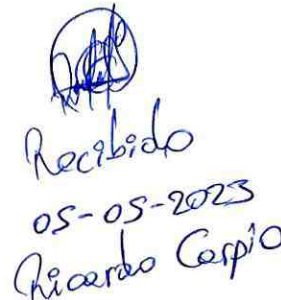 Recibido
05-05-2023
Ricardo Carpio